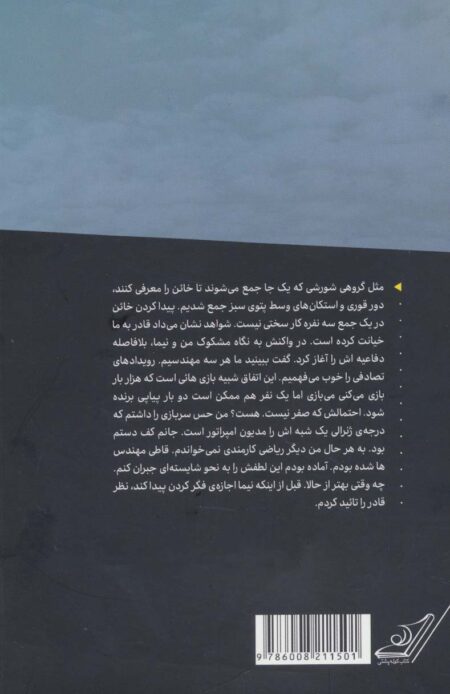 مثل گروهی شورشی که یک جا جمع می‌شوند تا خائن را معرفی کنند،
دور قوری و استکان‌های وسط پتوی سبز جمع شدیم. پیدا کردن خائن
در یک جمع سه نفره کار سختی نیست. شواهد نشان می‌داد قادر به ما
خیانت کرده است. در واکنش به نگاه مشکوک من و نیما، بلافاصله
دفاعیه اش را آغاز کرد. گفت ببینید ما هر سه مهندسیم. رویدادهای
تصادفی را خوب می‌فهمیم. این اتفاق شبیه بازی هائی است که هزار بار
بازی می‌کنی می‌بازی اما یک نفر هم ممکن است دو بار پیاپی برنده
شود. احتمالش که صفر نیست. هست؟ من حس سربازی را داشتم که
درجه‌ی ژنرالی یک شبه اش را مدیون امپراتور است. جانم کف دستم
بود. به هر حال من دیگر ریاضی کارمندی نمی‌خواندم. قاطی مهندس
ها شده بودم. آماده بودم این لطفش را به نحو شایسته‌ای جبران کنم.
چه وقتی بهتر از حالا. قبل از اینکه نیما اجازه‌ی فکر کردن پیدا کند، نظر
قادر را تائید کردم.
9 786008 211501
کتاب کوله‌پشتی